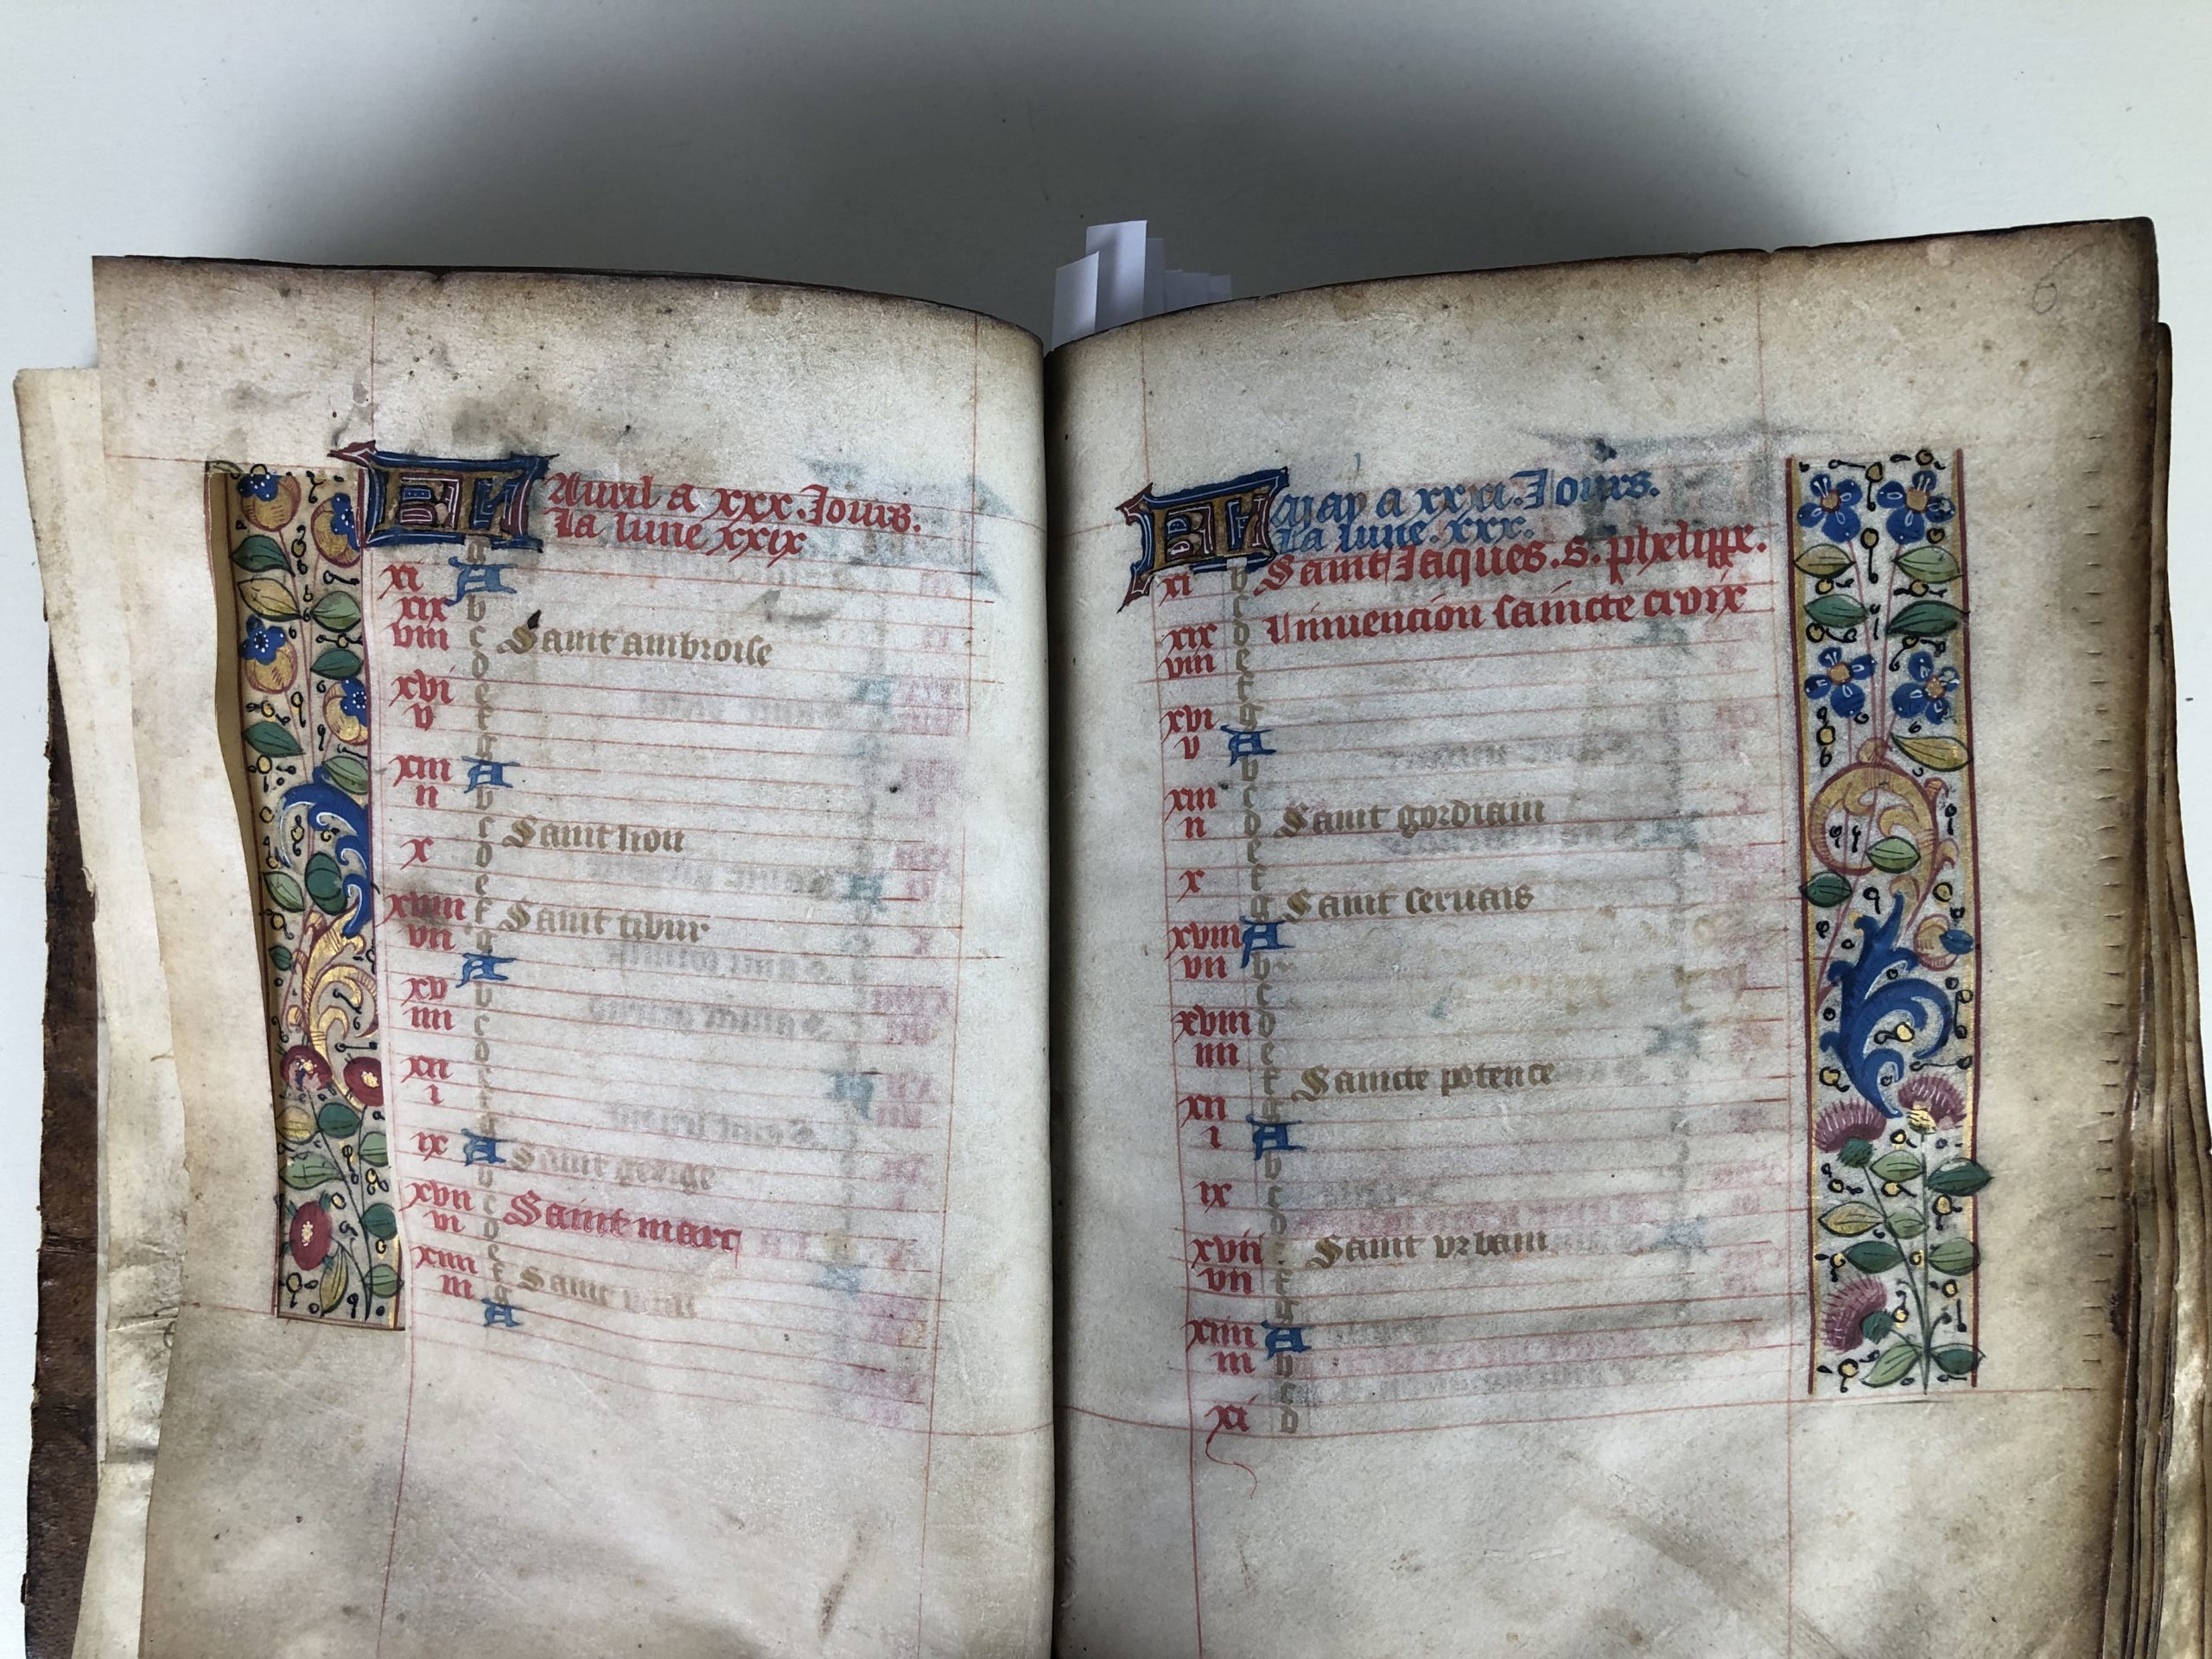 En Auril a xxx. Jours.
La lune xxix
g
xi A
xix b
viii c Saint ambroise
d
xvi e
v f
g
xiii A
ii b
c Saint lion
x d
e
xviii f Saint tibur
vii g
A
xv b
iiii c
d
xii e
i f
g
ix A Saint george
b
xvii c Saint marc
vi d
e
xiiii f Saint vital
iii g
A
6
En may a xxxi. Jours.
La lune. xxx.
xi b Saint Jaques. s. phelippe.
c
xix d L inuencion saincte croix
viii e
f
xvi g
v A
b
xiii c
ii d Saint gordiain
e
x f
g Saint seruais
xviii A
vii b
c
xviii d
iiii e
f Saincte potence
xii g
i A
b
ix c
d
xvii e Saint vrbain
vii f
g
xiiii A
iii b
c
xi d